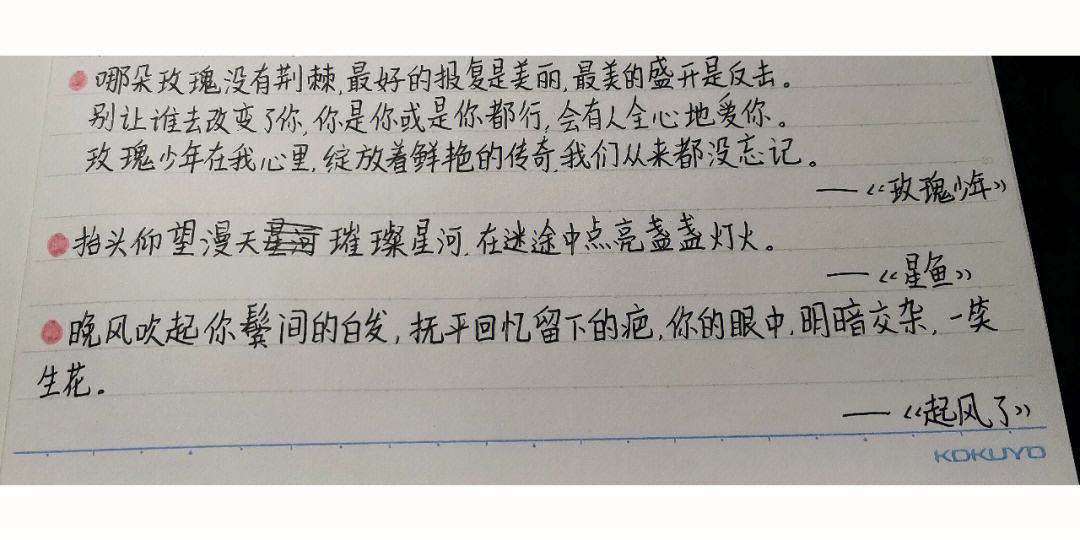 哪朵玫瑰没有荆棘,最好的报复是美丽,最美的盛开是反击。
别让谁去改变了你,你是你或是你都行,会有人全心地爱你。
玫瑰少年在我心里,绽放着鲜艳的传奇,我们从来都没忘记。
——《玫瑰少年》
抬头仰望漫天星河璀璨星河,在迷途中点亮盏盏灯火。
——《星鱼》
晚风吹起你鬓间的白发,抚平回忆留下的疤,你的眼中,明暗交杂,一笑
生花。
——《起风了》
KOKUYO